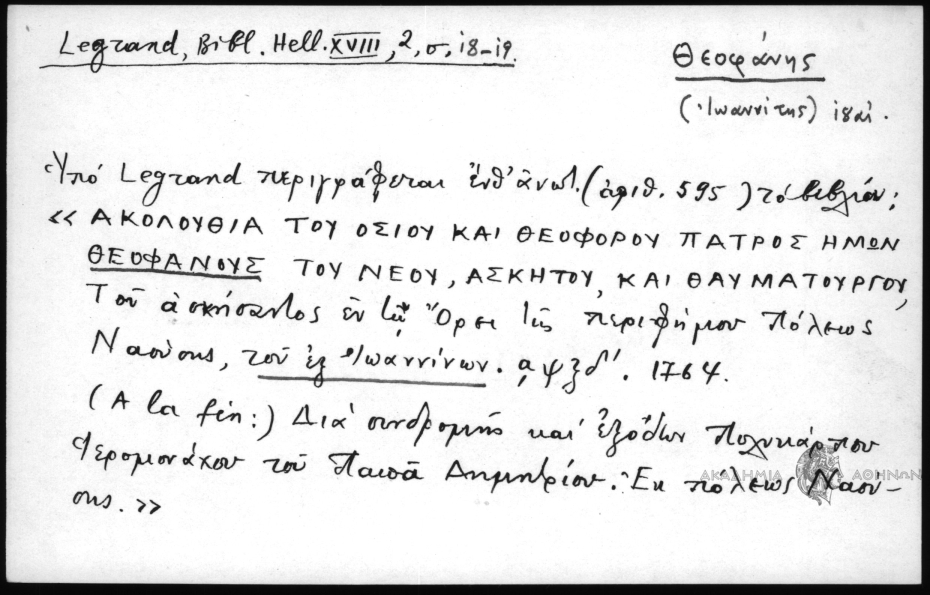 Legrand, Bibl. Hell. XVIII, 2, σ. 18-19.
Θεοφάνης
(Ἰωαννίτης)
Ὑπό Legrand περιγράφεται ἐνθ' ἀνωτ. (ἀριθ. 595) τό βιβλίον:
« ΑΚΟΛΟΥΘΙΑ ΤΟΥ ΟΣΙΟΥ ΚΑΙ ΘΕΟΦΟΡΟΥ ΠΑΤΡΟΣ ΗΜΩΝ
ΘΕΟΦΑΝΟΥΣ ΤΟΥ ΝΕΟΥ, ΑΣΚΗΤΟΥ, ΚΑΙ ΘΑΥΜΑΤΟΥΡΓΟΥ,
Τοῦ ἀσκήσαντος ἐν τῷ Ὄρει τῆς περιφήμου Πόλεως
Ναούσης, τοῦ ἐξ Ἰωαννίνων. αψξδ'. 1764.
(A la fin:) Διά συνδρομῆς καί ἐξόδων Πολυκάρπου
Ἱερομονάχου τοῦ Παπᾶ Δημητρίου. Ἐκ πόλεως Ναού-
σης. »
ΑΚΑΔΗΜΙΑ ΑΘΗΝΩΝ